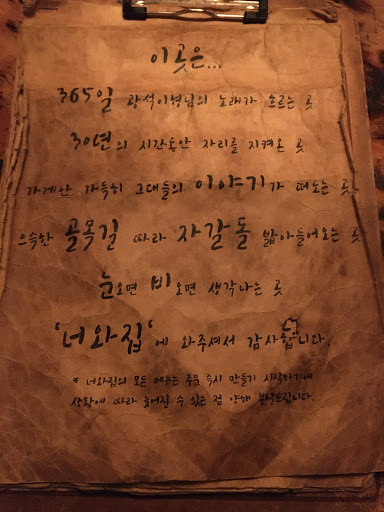 이곳은...
365일 광석이형님의 노래가 흐르는 곳
30년의 시간동안 자리를 지켜온 곳
가게안 가득히 그대들의 이야기가 떠도는 곳
으슥한 골목길 따라 자갈돌 밟아들어오는 곳
눈오면 비오면 생각나는 곳
'너와집'에 와주셔서 감사합니다.
* 너와집의 모든 메뉴는 주문 즉시 만들기 시작하기에
상황에 따라 늦어질 수 있는 점 양해 부탁드립니다.